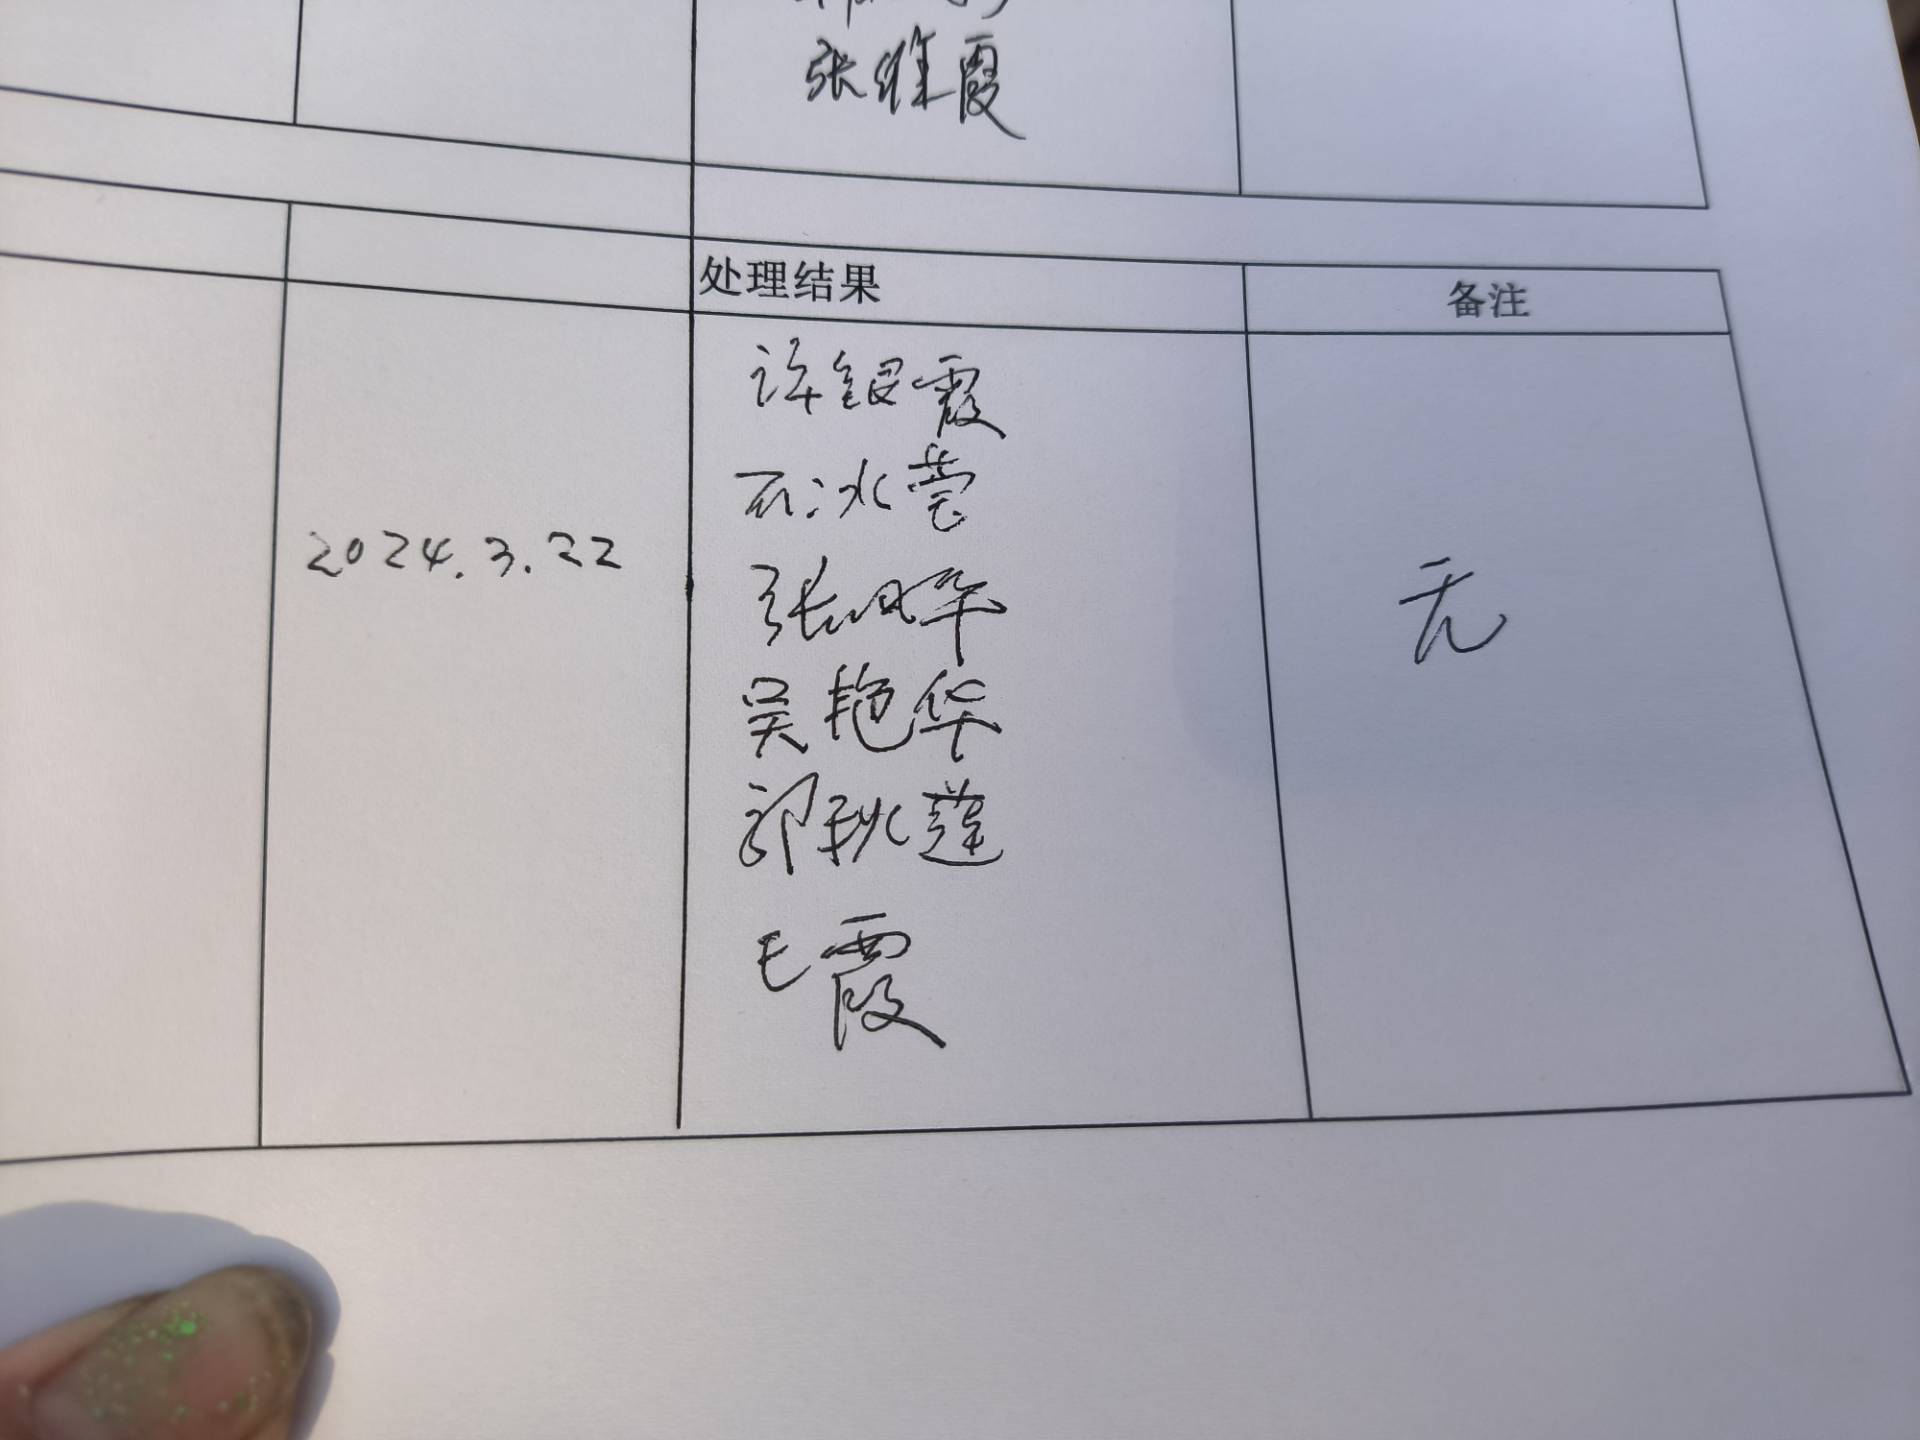 张维霞
处理结果
备注
许银霞
石冰莹
2024.3.22
张晔
无
吴艳华
郭秋莲
毛霞